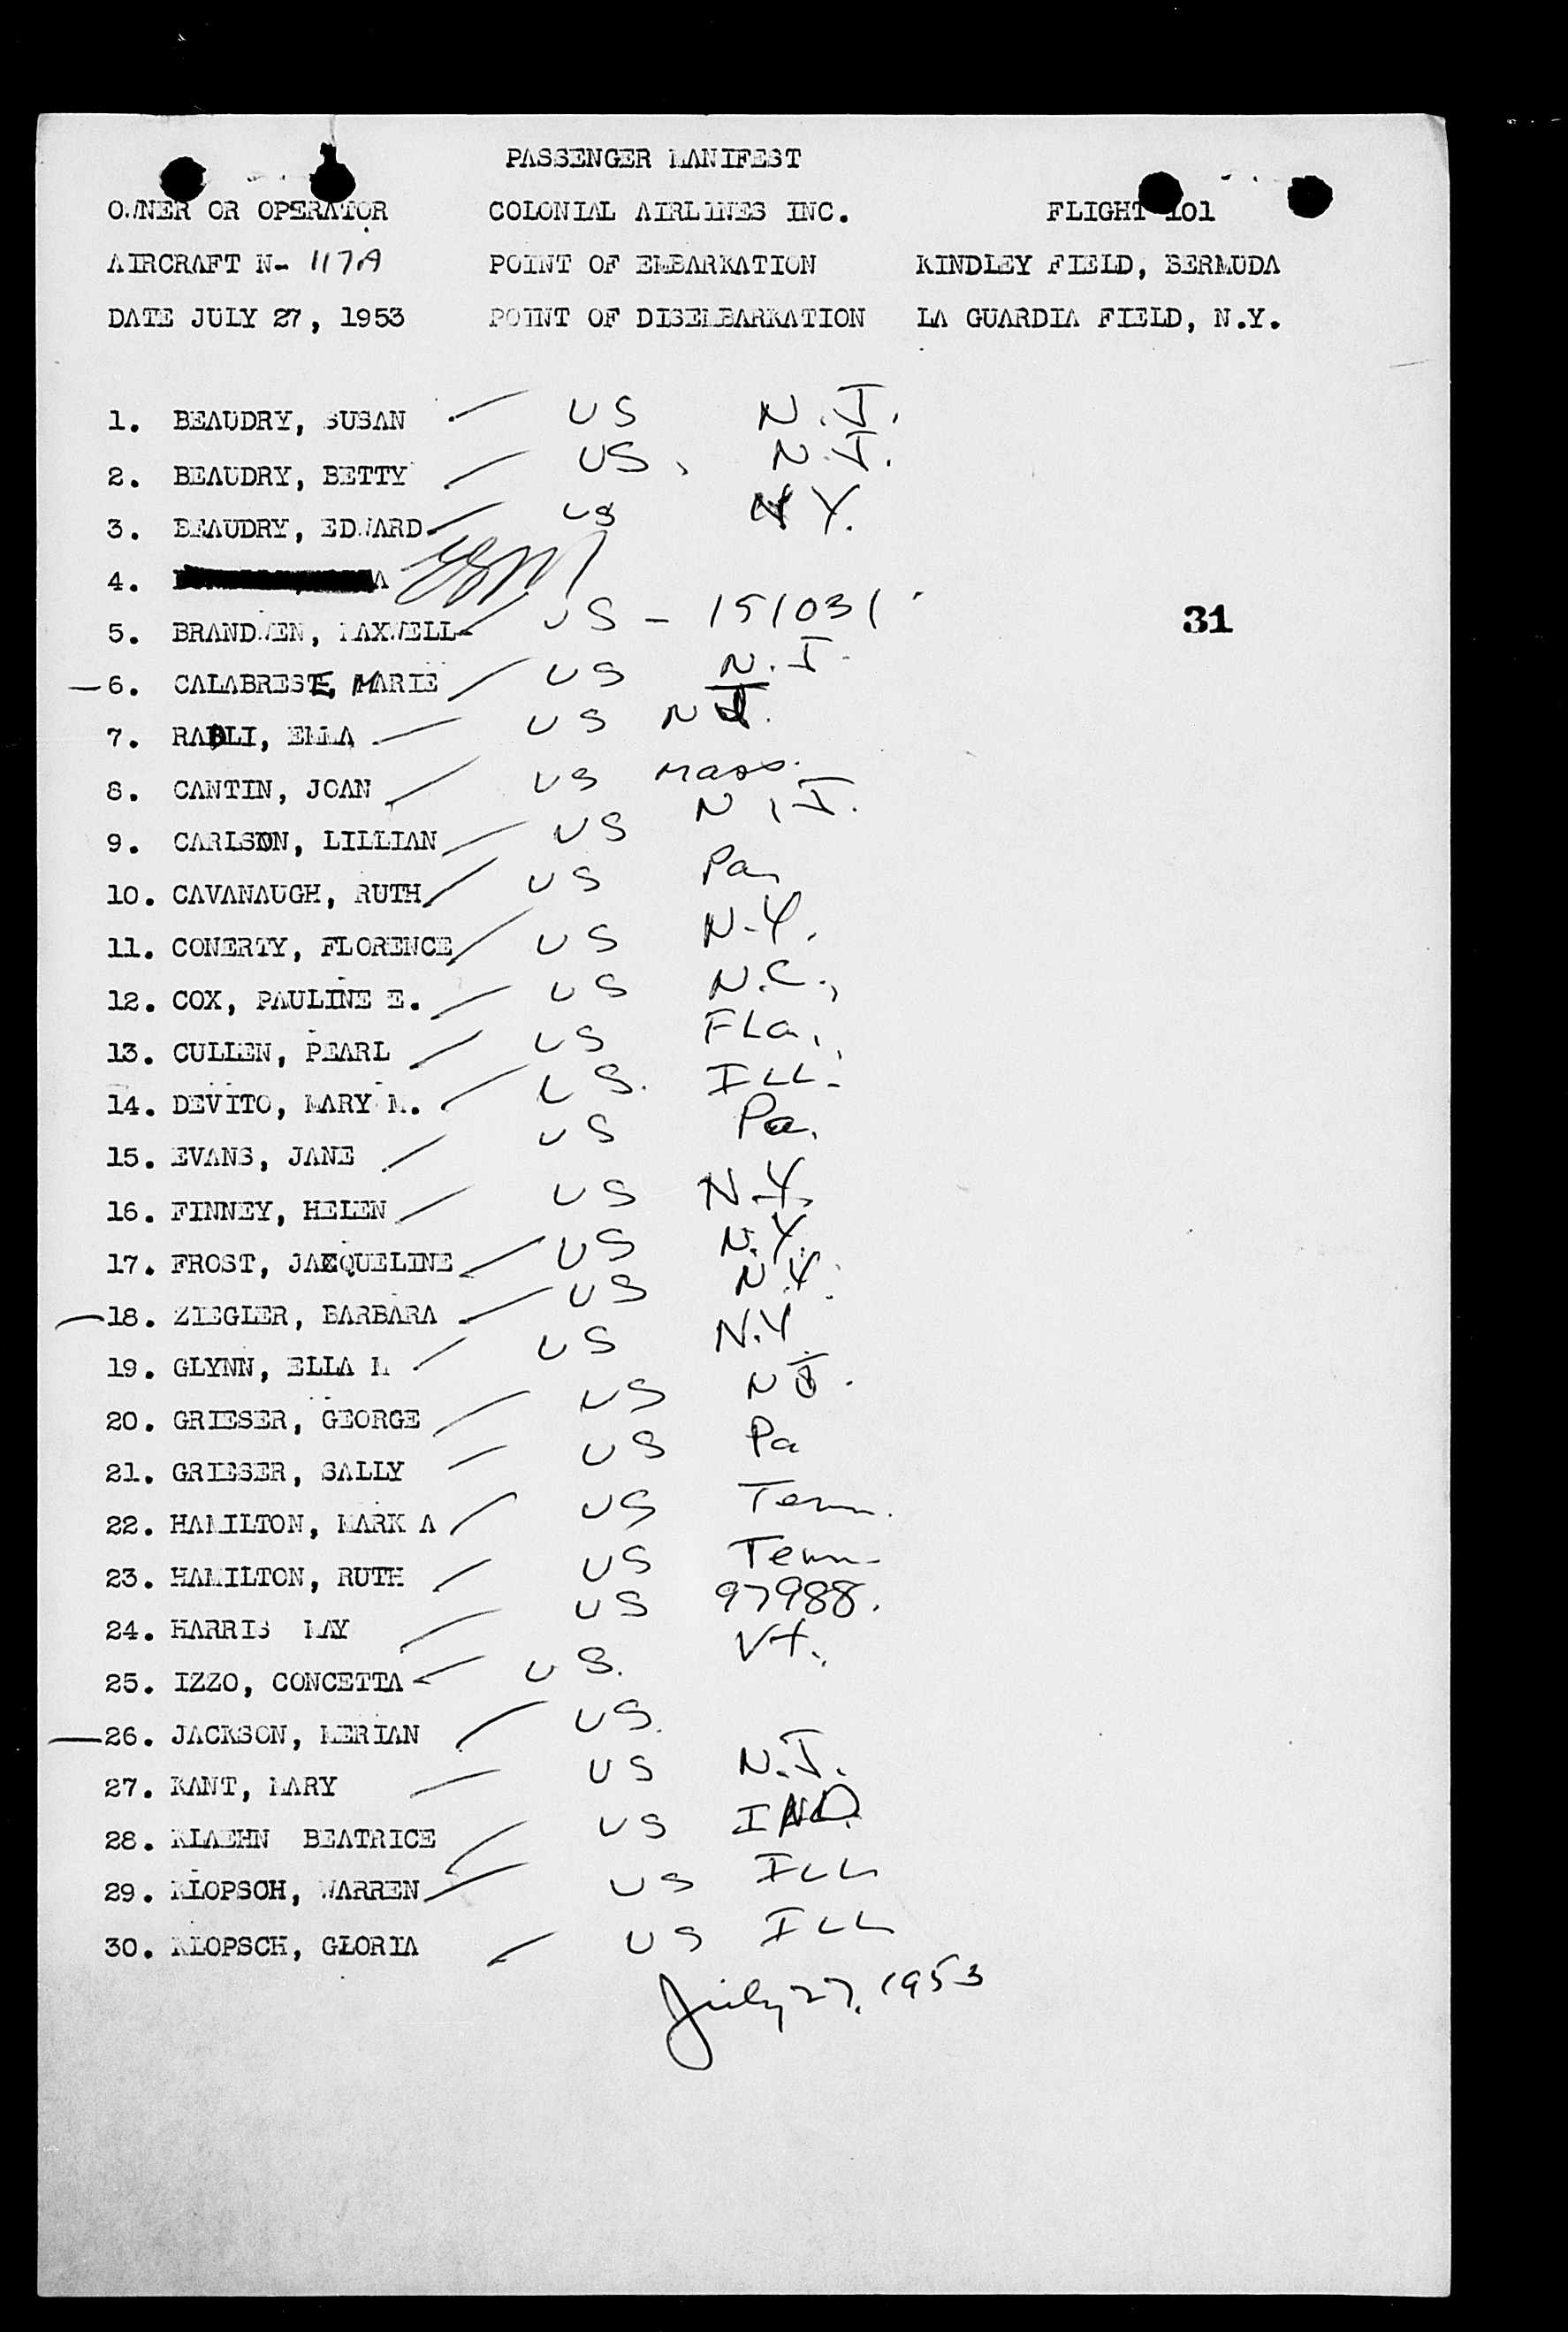 PASSENGER MANIFEST
OWNER OR OPERATOR COLONIAL AIRLINES INC. FLIGHT 101
AIRCRAFT N- 117A POINT OF EMBARKATION KINDLEY FIELD, BERMUDA
DATE JULY 27, 1953 POINT OF DISEMBARKATION LA GUARDIA FIELD, N.Y.
1. BEAUDRY, SUSAN US N.J.
2. BEAUDRY, BETTY US, N.J.
3. BEAUDRY, EDWARD US NY.
4.
5. BRANDWEN, MAXWELL US - 151031
31
6. CALABRESE, MARIE US N.J.
7. RADLI, EMMA US NJ.
8. CANTIN, JOAN US Mass.
9. CARLSON, LILLIAN US N.J.
10. CAVANAUGH, RUTH US Pa
11. CONERTY, FLORENCE US N.Y.
12. COX, PAULINE E. US N.C.
13. CULLEN, PEARL US FLa.
14. DEVITO, MARY M. US. ILL.
15. EVANS, JANE US Pa.
16. FINNEY, HELEN US N.Y.
17. FROST, JACQUELINE US N.Y.
18. ZIEGLER, BARBARA US N.Y.
19. GLYNN, ELLA M US N.Y.
20. GRIESER, GEORGE US NJ.
21. GRIESER, SALLY US Pa
22. HAMILTON, MARK A US Tenn.
23. HAMILTON, RUTH US Tenn.
24. HARRIS MAY US 97988.
25. IZZO, CONCETTA US. Vt.
26. JACKSON, MERIAN US.
27. KANT, MARY US N.J.
28. KLAEHN BEATRICE US IND.
29. KLOPSCH, WARREN US ILL
30. KLOPSCH, GLORIA US ILL
July 27, 1953